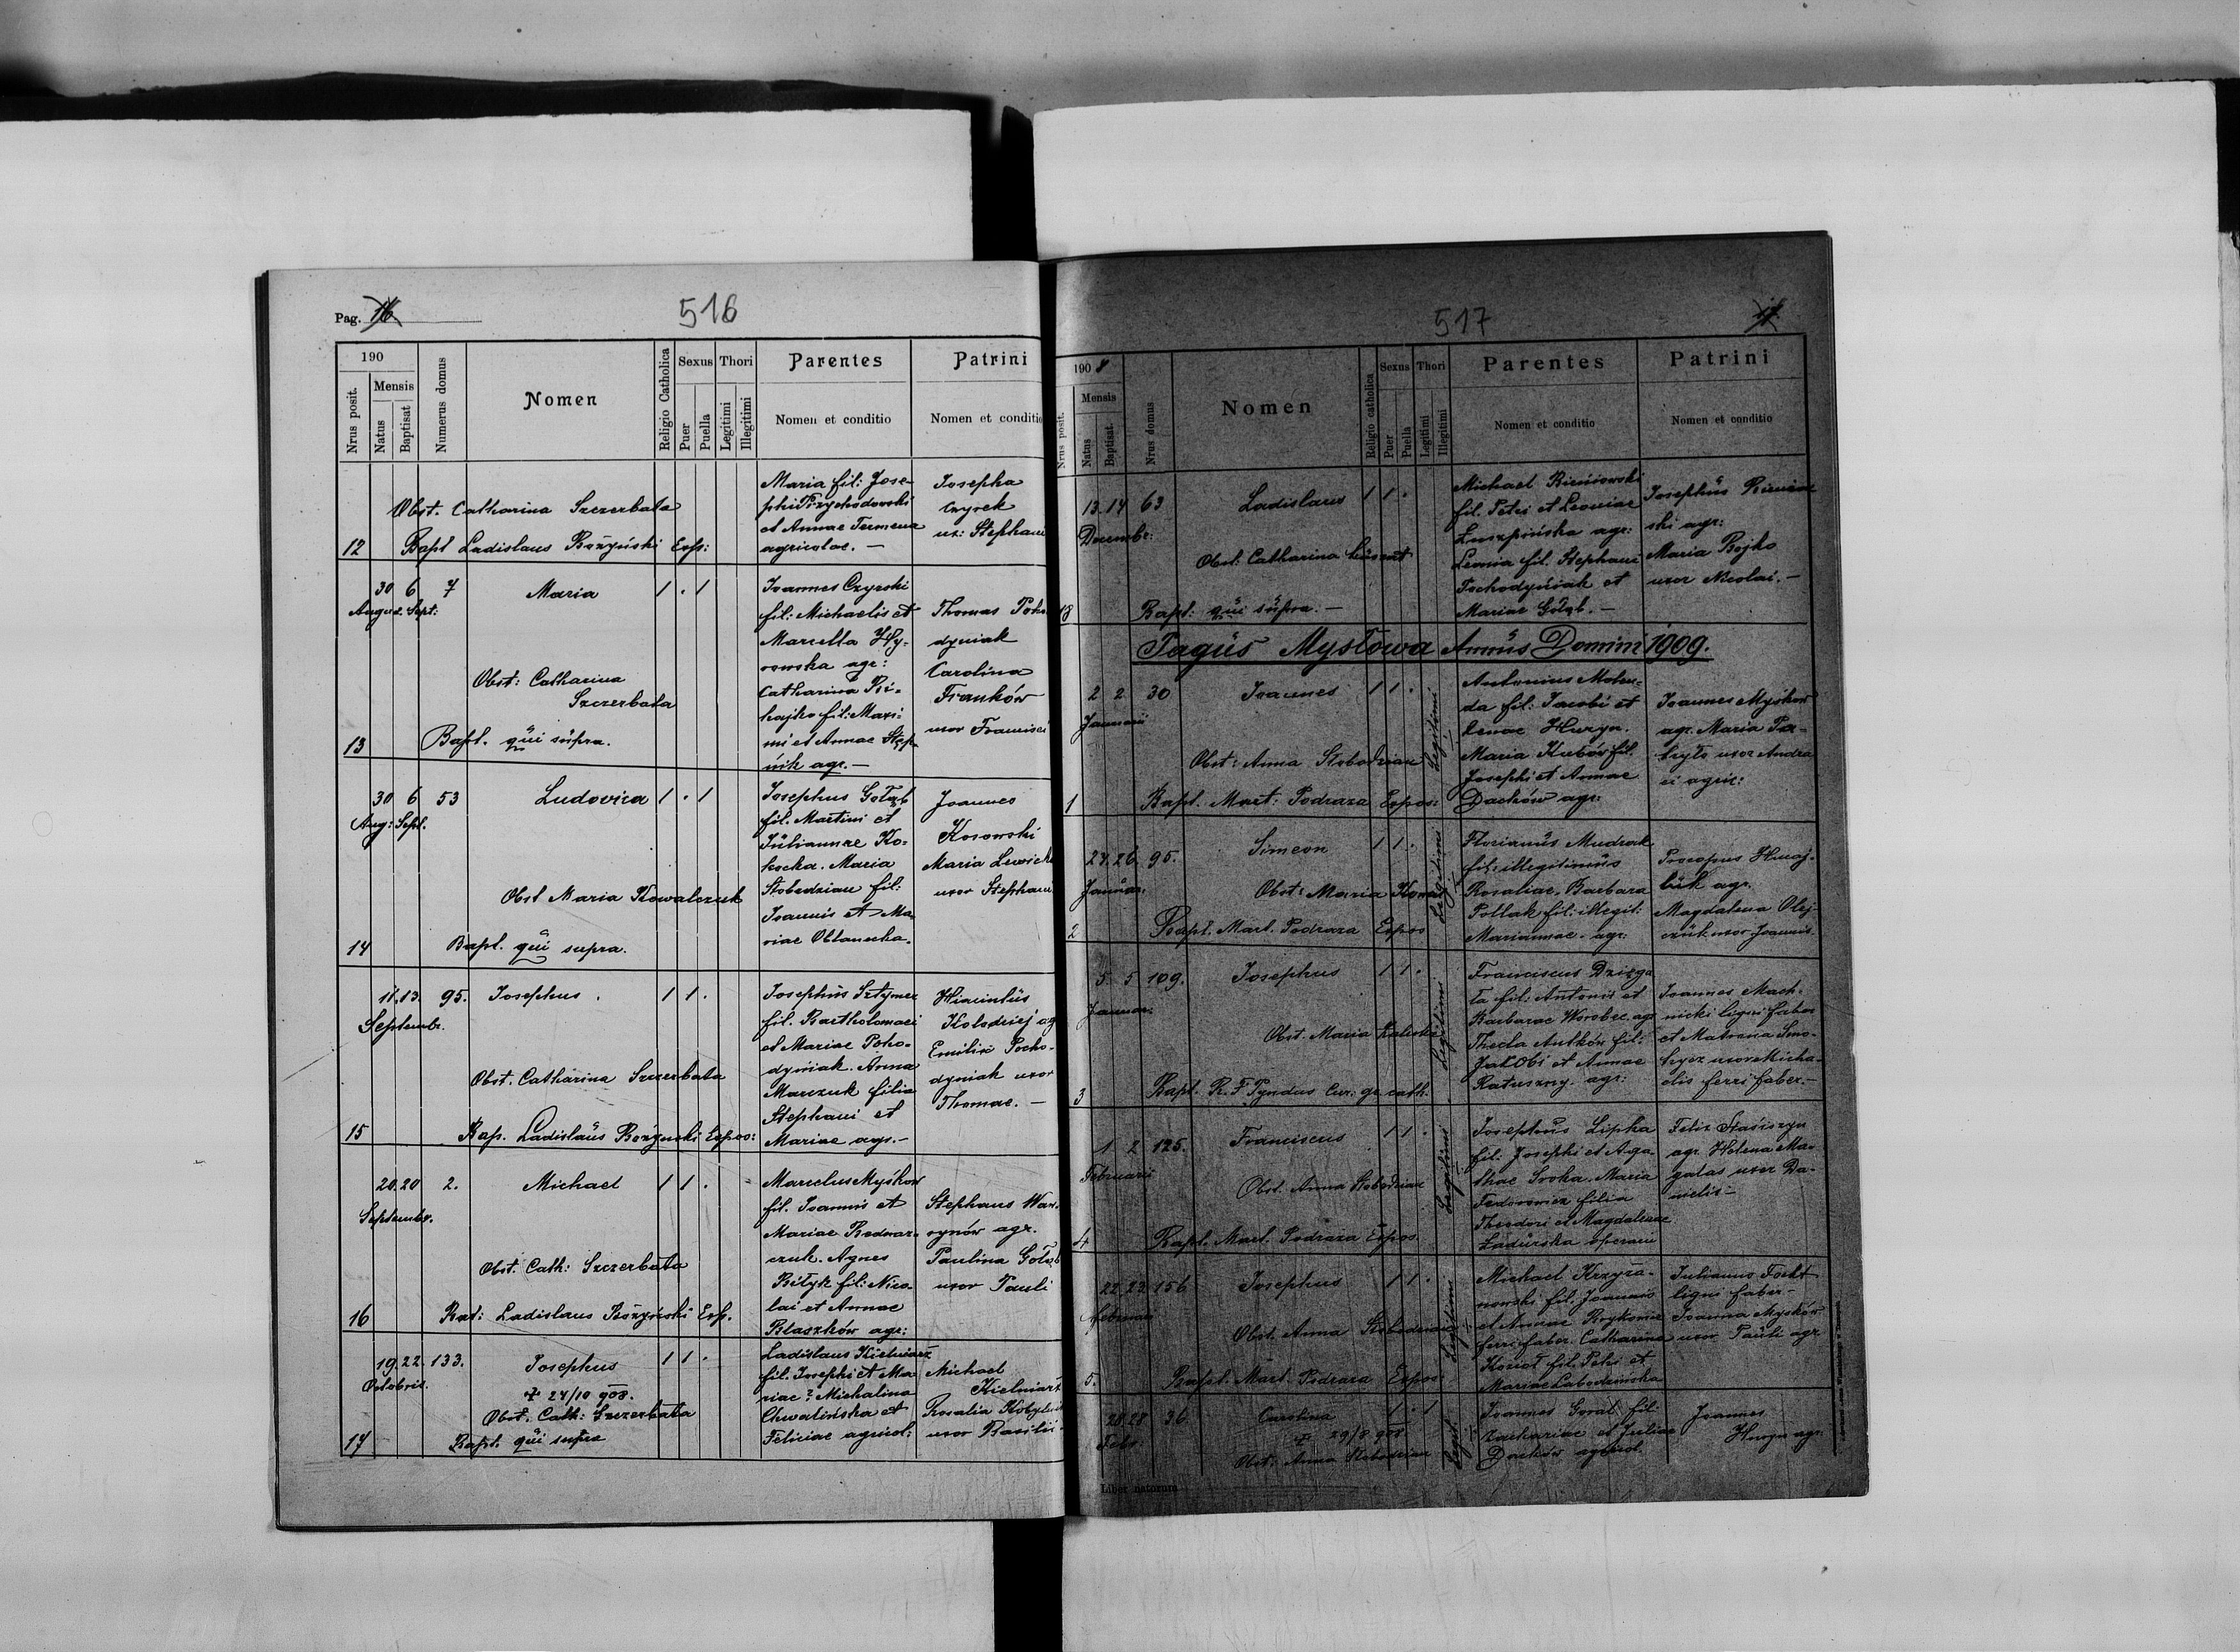 Pag. 16.
516
190
Nrus posit.
Mensis
Natus
Baptisat
Numerus domus
Nomen
Religio Catholica
Sexus
Puer
Puella
Thori
Legitimi
Illegitimi
Parentes
Nomen et conditio
Patrini
Nomen et conditio
12
Obst. Catharina Szczerbata
Bapt Ladislaus Bożyński Exp:
Maria fil: Jose-
phi Przychodowski
et Annae
agricolae. —
Josepha
Czyrek
ux: Stephani
13
30 6 7
August. Sept:
Maria 1 . 1
Obst: Catharina
Szczerbata
Bapt. qui supra.
Joannes Czyrski
fil: Michaelis et
Marcella Hy-
rowska agr:
Catharina Ki-
hajko fil: Maxi-
mi et Annae Stęp-
nik agr. —
Thomas Poho
dyniak
Carolina
Franków
uxor Francisci
14
30 6 53
Aug: Sept.
Ludovica 1 . 1
Obst Maria Kowalczuk
Bapt. qui supra.
Josephus Gołąb
fil. Martini et
Juliannae Ko-
kocka. Maria
Słobodzian fil:
Joannis et Ma-
riae
Joannes
Kosowski
Maria Lewick
uxor Stephani
15
11. 13. 95.
Septembr.
Josephus 1 1 .
Obst. Catharina Szczerbata
Bap. Ladislaus Bożynski Expos:
Josephus Sztymer
fil. Bartholomaei
et Mariae Poho-
dyniak. Anna
Marczuk filia
Stephani et
Mariae agr. —
Hiacintus
Kolodziej ag
Emilia Pocho-
dyniak uxor
Thomae. —
16
20. 20 2.
Septembr.
Michael 1 1 .
Obst. Cath: Szczerbata
Bat: Ladislaus Bożyński Exp.
Marcelus Myśków
fil. Joannis et
Mariae Bednar-
czuk. Agnes
Biłyk fil: Nico-
lai et Annae
Błaszków agr:
Stephanus War-
ynów agr.
Paulina Gołąb
uxor Pauli
17
19. 22. 133.
Octobris.
Josephus 1 1 .
+ 24/10 908.
Obst. Cath: Szczerbata
Bapt. qui supra
Ladislaus Kielniarz
fil. Josephi et Ma-
riae? Michalina
Chwalińska et
Feliciae agricol:
Michael
Kielniarz
Rosalia
uxor Basilii
517
17
1908
Nrus posit.
Mensis
Natus
Baptisat.
Nrus domus
Nomen
Religio catholica
Sexus
Puer
Puella
Thori
Legitimi
Illegitimi
Parentes
Nomen et conditio
Patrini
Nomen et conditio
18
13. 14 63
Decembr:
Ladislaus 1 1 .
Obst: Catharina
Bapt: qui supra. —
Michael Bieniowski
fil. Petri et Leoniae
Łuszpińska agr:
Leonia fil. Stephani
Pochodyniak et
Mariae Gołąb. —
Josephus Bieniow
ski agr:
Maria Bojko
uxor Nicolai. —
Pagus Mysłowa Annus Domini 1909.
1
2 2 30
Januarii
Joannes 1 1 .
Legitimi
Obst: Anna Słobodzian
Bapt. Mart: Podraza Expos:
Antonius Molen-
da fil: Jacobi et
Huryn.
Maria Kubów fil.
Josephi et Annae
Daćków agr:
Joannes Myśków
agr. Maria Pa-
uxor Andre
ei agric:
2
24. 26. 95.
Januar.
Simeon 1 1 .
Legitimi
Obst: Maria
Bapt. Mart. Podraza Expos
Florianus Mudrak
fil: illegitimus
Rosaliae. Barbara
Pollak fil: illegit:
Mariannae. agr:
Procopius Hnaj-
luk agr.
Magdalena Olej-
czuk uxor Joannis.
3
5. 5 109.
Januar.
Josephus 1 1 .
Legitimi
Obst. Maria
Bapt. R. F. Pyndus Cur: gr. cath.
Franciscus Dzięga
ła fil: Antonii et
Barbarae Worobec. agr
Thecla Antków fil:
Jacobi et Annae
Ratuszny. agr:
Joannes Mach-
nicki ligni faber
et Matrona Smo-
uxor Micha-
elis ferri faber. —
4
1 2 125.
Februarii
Franciscus 1 1 .
Legitimi
Obst. Anna Słobodzian
Bapt. Mart. Podraza Expos.
Josephus Lipka
fil. Josephi et Aga-
thae Sroka. Maria
Fedorowicz filia
Theodori et Magdalenae
operarii
Felix Stasiszyn
agr. Helena Ma-
gadas uxor Da-
nielis —
5.
22. 23. 156
Februarii
Josephus 1 1 .
Legitimi
Obst. Anna Słobodzian
Bapt. Mart. Podraza Expos:
Michael Krzyża-
nowski fil. Joannis
et Annae
ferri faber. Catharina
Kozioł fil. Petri et
Mariae
Julianus Focht
ligni faber —
Joanna Myśków
uxor Pauli agr
28. 28 36
Febr.
Carolina 1 . 1
+ 29/8 908
Legit.
Obst: Anna Słobodzian
Joannes Goral fil
Zachariae et Juliae
Daćków agricol.
Joannes
Huryn agr.
Liber natorum